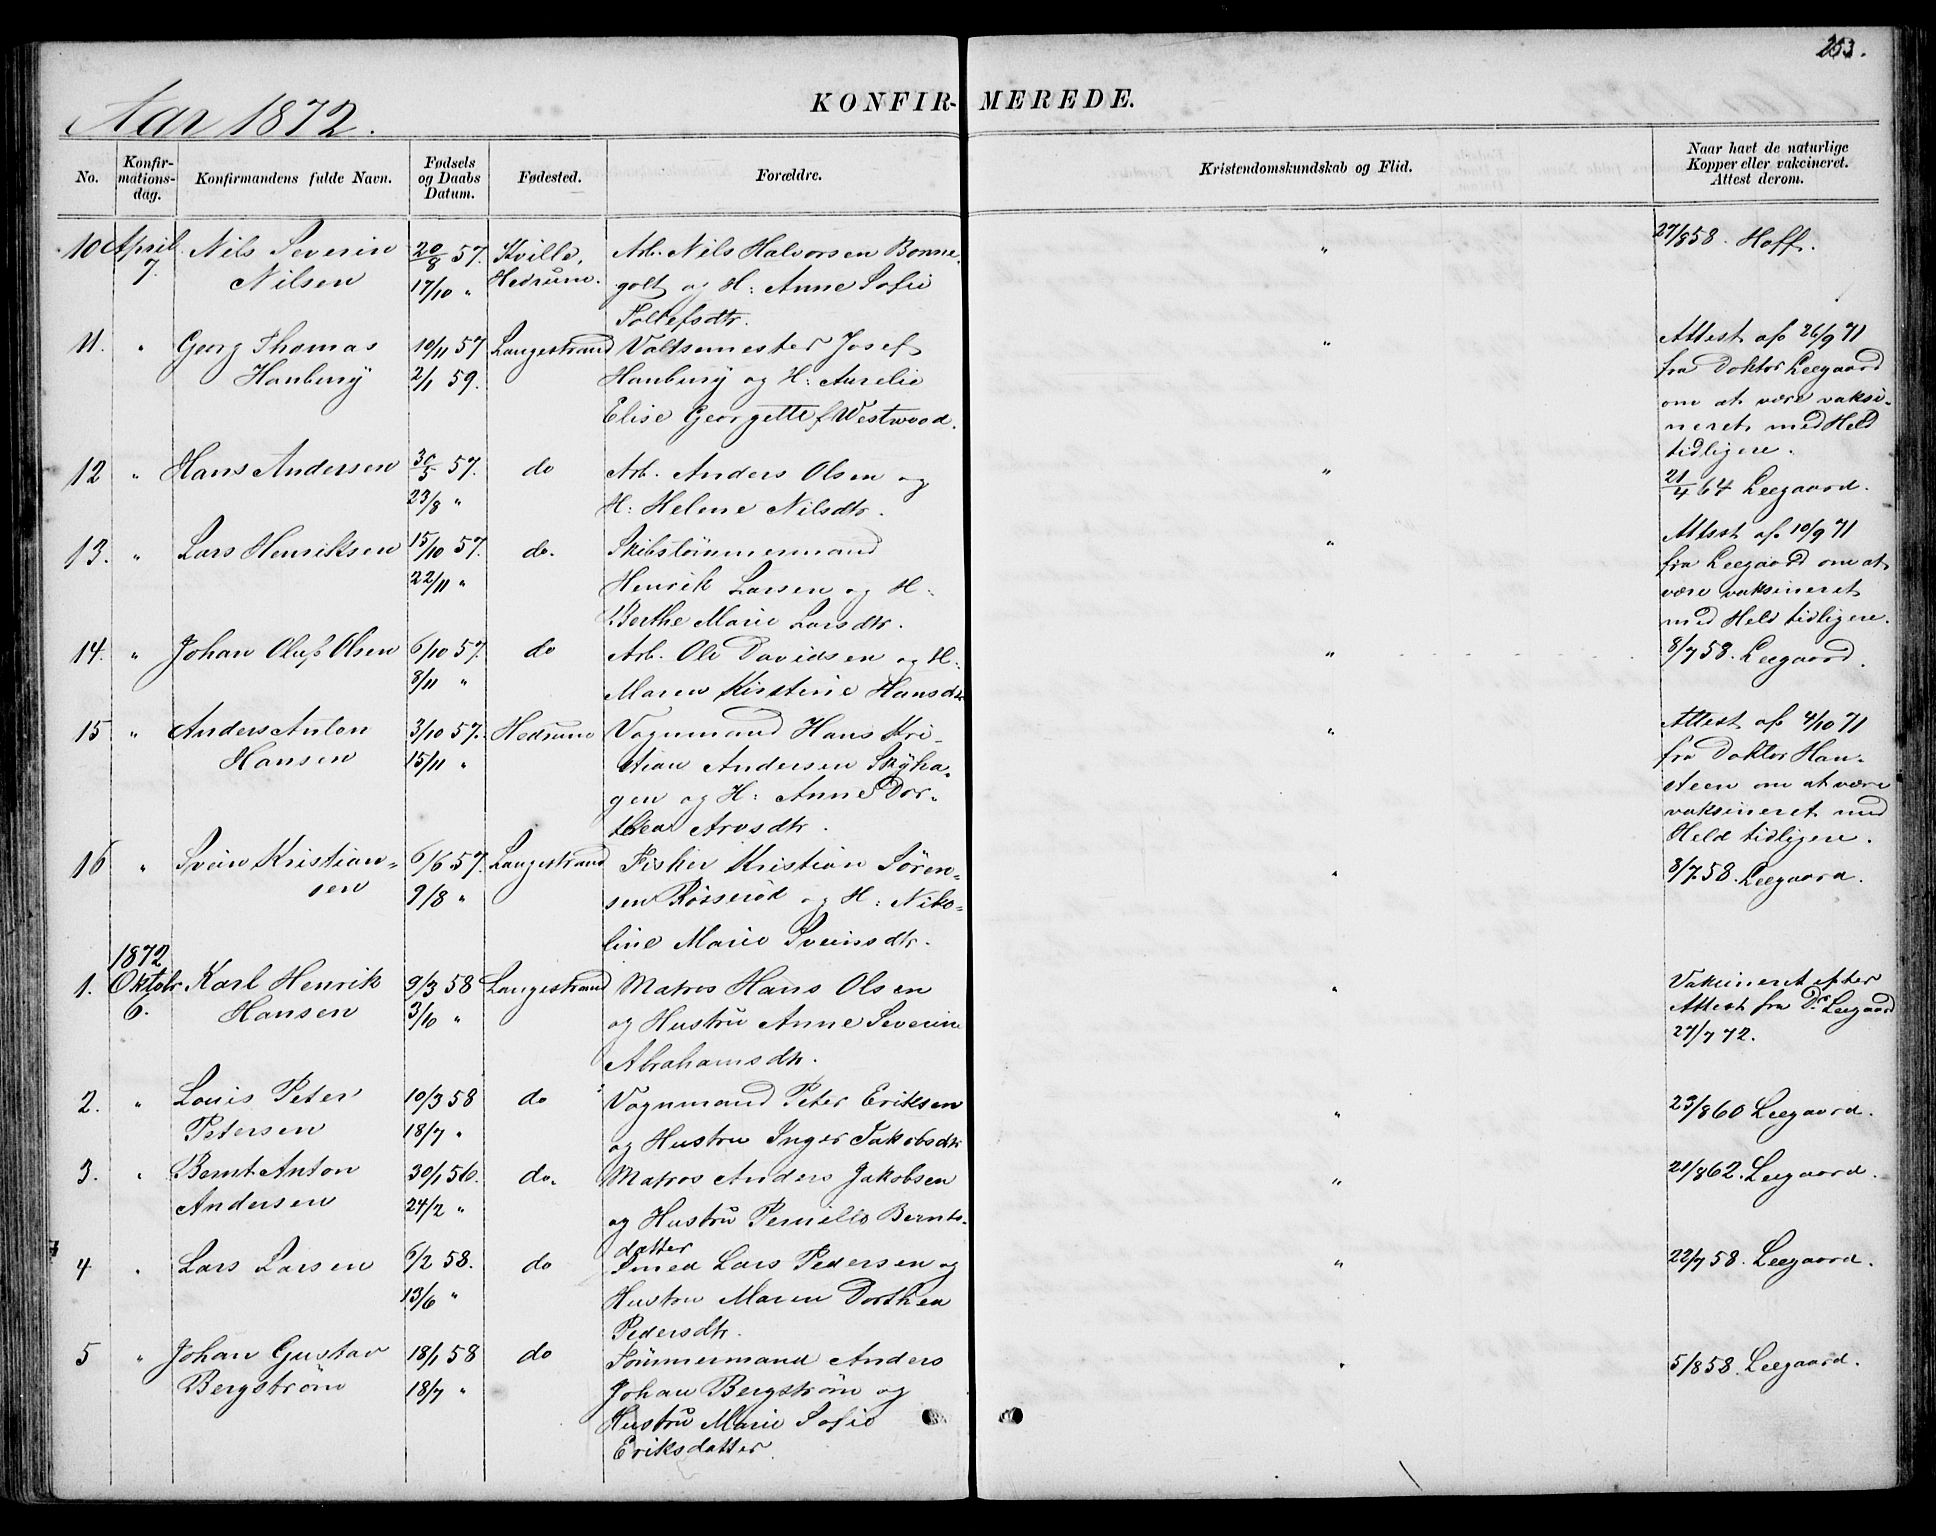 253.
Aar 1872.
KONFIR- MEREDE.
No. Konfir-mations-dag. Konfirmandens fulde Navn. Fødsels og Daabs Datum. Fødested. Forældre. Kristendomskundskab og Flid. Naar havt de naturlige Kopper eller vakcineret. Attest derom.
10 April Nils Severin 20/8 57. Kville, Arb. Nils Halvorsen Bonne- " 27/8 58. Hoff.
7. Nilsen 17/10 " Hedrum. golt og H: Anne Sofie
Tollefsdtr.
11. " Georg Thomas 10/11 57 Langestrand Valsemester Josef " Attest af 26/9 71
Hanbury 2/1 59. Hanbury og H: Aurelie fra Doktor Leegaard
Elise Georgette f Westwood. om at være vaksi-
neret med Held
tidligere.
12 " Hans Andersen 30/5 57. do Arb. Anders Olsen og " 21/4 64 Leegaard.
23/8 " H: Helene Nilsdtr.
13. " Lars Henriksen 15/10 57. do. Skibstømmermand " Attest af 10/9 71
22/11 " Henrik Larsen og H. fra Leegaard om at
Berthe Marie Larsdtr. være vaksineret
med Held tidligere.
14. " Johan Oluf Olsen 6/10 57. do Arb. Ole Davidsen og H. " 8/7 58. Leegaard.
8/11 " Maren Kirstine Hansdtr
15 " Anders Anton 3/10 57. Hedrum Vognmand Hans Kri- " Attest af 4/10 71
Hansen 15/11 " stian Andersen Skyha- fra Doktor Han-
gen og H: Anne Dor- steen om at være
thea Arvsdtr. vaksineret med
Held tidligere.
16 " Svein Kristian- 6/6 57. Langestrand Fisker Kristian Søren- " 8/7 58. Leegaard.
sen 9/8 " sen og H: Niko-
line Marie Sveinsdtr.
1872
1. Oktobr Karl Henrik 9/3 58 Langestrand Matros Hans Olsen " Vakcineret efter
6. Hansen 3/6 " og Hustru Anne Severine Attest fra Dr. Leegaard
Abrahamsdtr. 27/7 72.
2. " Louis Peter 10/3 58 do Vognmand Peter Eriksen " 23/8 60 Leegaard.
Petersen 18/7 " og Hustru Inger Jakobsdtr
3. " Bernt Anton 30/1 56. do. Matros Anders Jakobsen " 21/8 62. Leegaard.
Andersen 24/2 " og Hustru Pernille Bernts-
datter
4 " Lars Larsen 6/2 58. do Smed Lars Pedersen og " 22/7 58. Leegaard.
13/6 " Hustru Maren Dorthea
Pedersdtr.
5 " Johan Gustav 18/1 58 do Tømmermand Anders " 5/8 58. Leegaard.
Bergstrøm 18/7 " Johan Bergstrøm og
Hustru Marie Sofie
Eriksdatter.